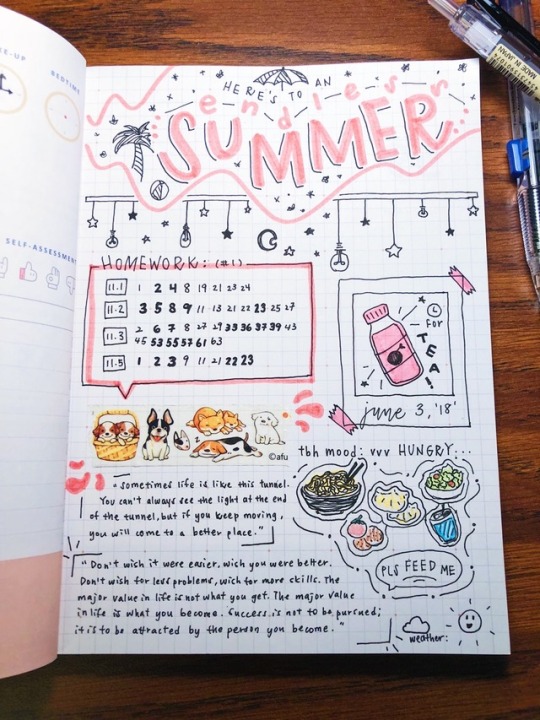 KE-UP
BEDTIME
SELF-ASSESSMENT
MADE IN JAPAN
HERE'S TO AN
endless
SUMMER
HOMEWORK: (#1)
11.1 1 2 4 8 19 21 23 24
11.2 3 5 8 9 11 13 21 22 23 25 27
11.3 2 6 7 8 27 29 33 36 37 39 43
45 53 55 57 61 63
11.5 1 2 3 9 11 21 22 23
FOR
TEA!
june 3, '18'
©afu
"sometimes life is like this tunnel.
You can't always see the light at the end
of the tunnel, but if you keep moving,
you will come to a better place."
tbh mood: vvv HUNGRY...
PLS FEED ME
"Don't wish it were easier, wish you were better.
Don't wish for less problems, wish for more skills. The
major value in life is not what you get. The major value
in life is what you become. Success is not to be pursued;
it is to be attracted by the person you become."
weather: